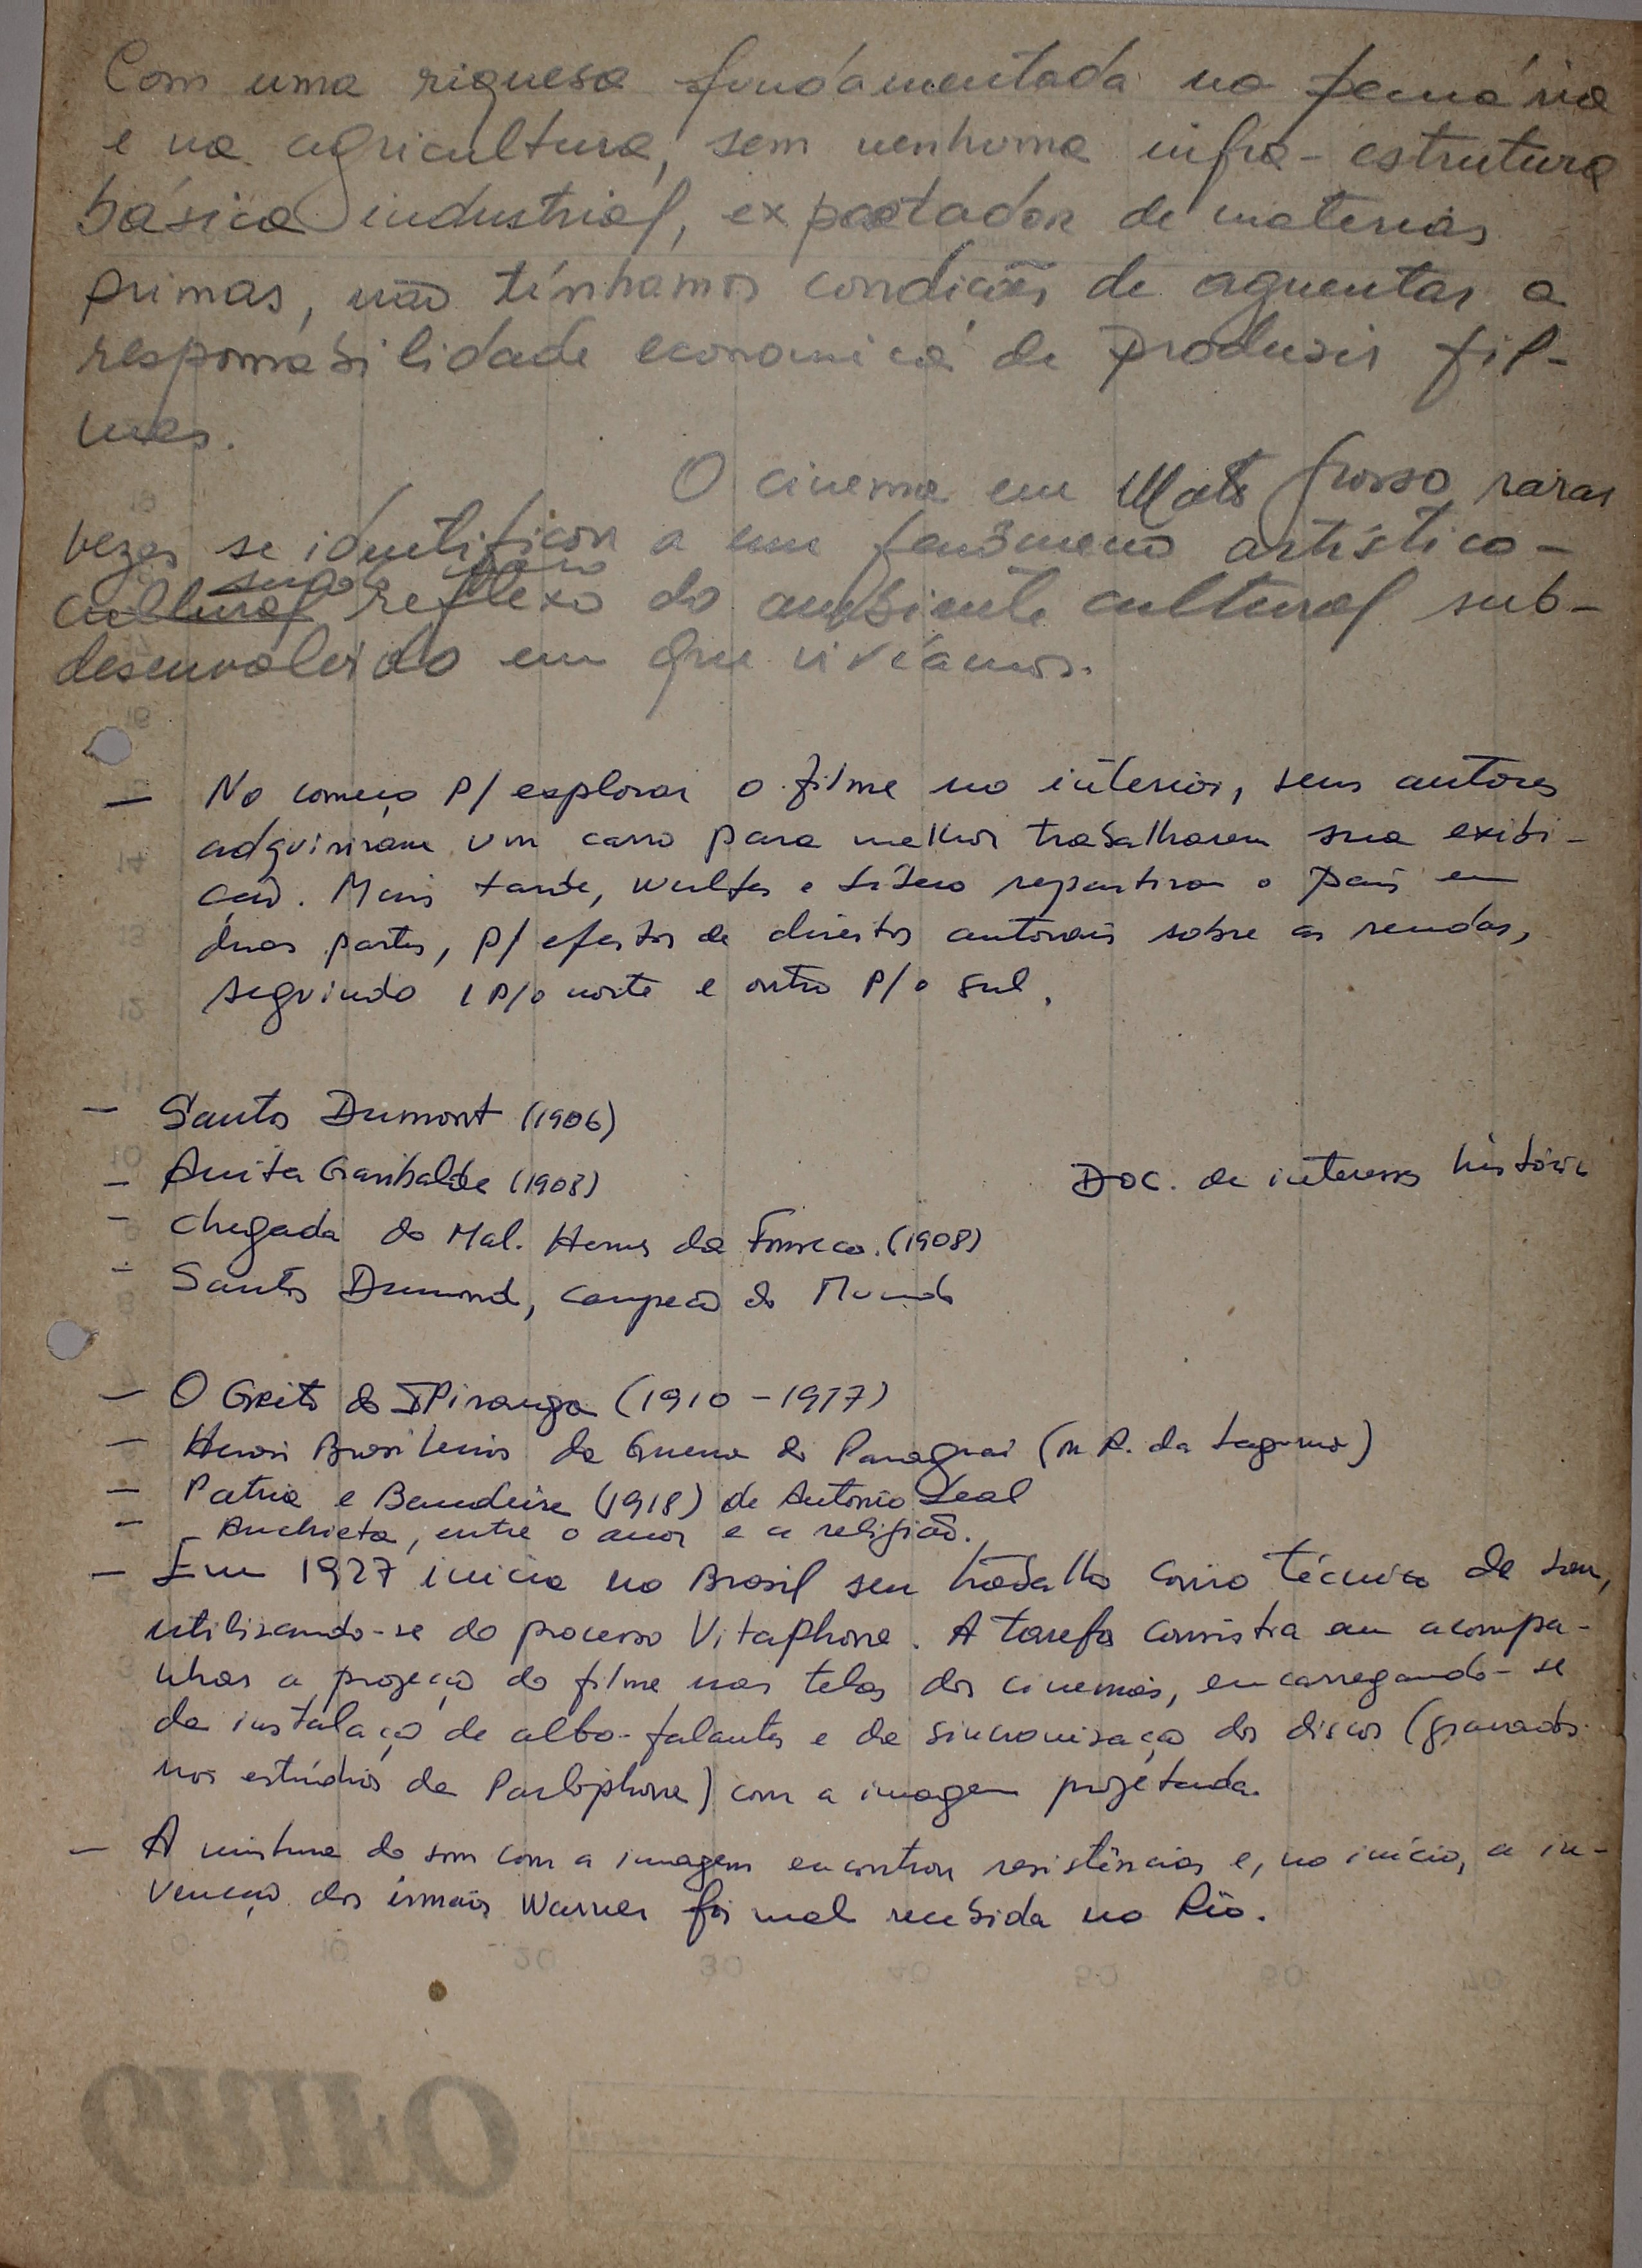 Com uma riquesa fundamentada na pecuária
e na agricultura, sem nenhuma infra-estrutura
básica industrial, exportador de materias
primas, não tínhamos condições de aguentar a
responsabilidade economica de produsir fil-
mes.
O cinema em Mato Grosso raras
vezes se identificou a um fenômeno artístico-
cultural reflexo do ambiente cultural sub-
desenvolvido em que viviamos.
— No começo p/ explorar o filme no interior, seus autores
adquiriram um carro para melhor trabalharem sua exibi-
ção. Mais tarde, Wulfes e Líbero repartiram o país em
duas partes, p/ efeitos de direitos autorais sobre as rendas,
seguindo 1 p/o norte e outro p/o sul.
— Santos Dumont (1906)
— Anita Garibalde (1908) Doc. de interesse
- Chegada do Mal. Hermes da Fonseca. (1908)
- Santos Dumond, campeão do Mundo
— O Grito do IPiranga (1910-1917)
— Herois Brasileiros da Guerra do Paraguai (da Laguna)
— Patria e Bandeira (1918) de Antonio Leal
- Anchieta, entre o amor e a religião.
— Em 1927 inicia no Brasil seu trabalho como técnico de som,
utilisando-se do processo Vitaphone. A tarefa consistia em acompa-
nhar a projeção do filme nas telas dos cinemas, encarregando-se
da instalação de alto-falantes e da sincronisação dos discos (gravados
nos estúdios da Parlophone) com a imagem projetada.
— A mistura do som com a imagem encontrou resistências e, no início, a in-
venção dos irmãos Warner foi mal recebida no Rio.
14
13
12
11
10
0 10 20 30 40 50 60 70